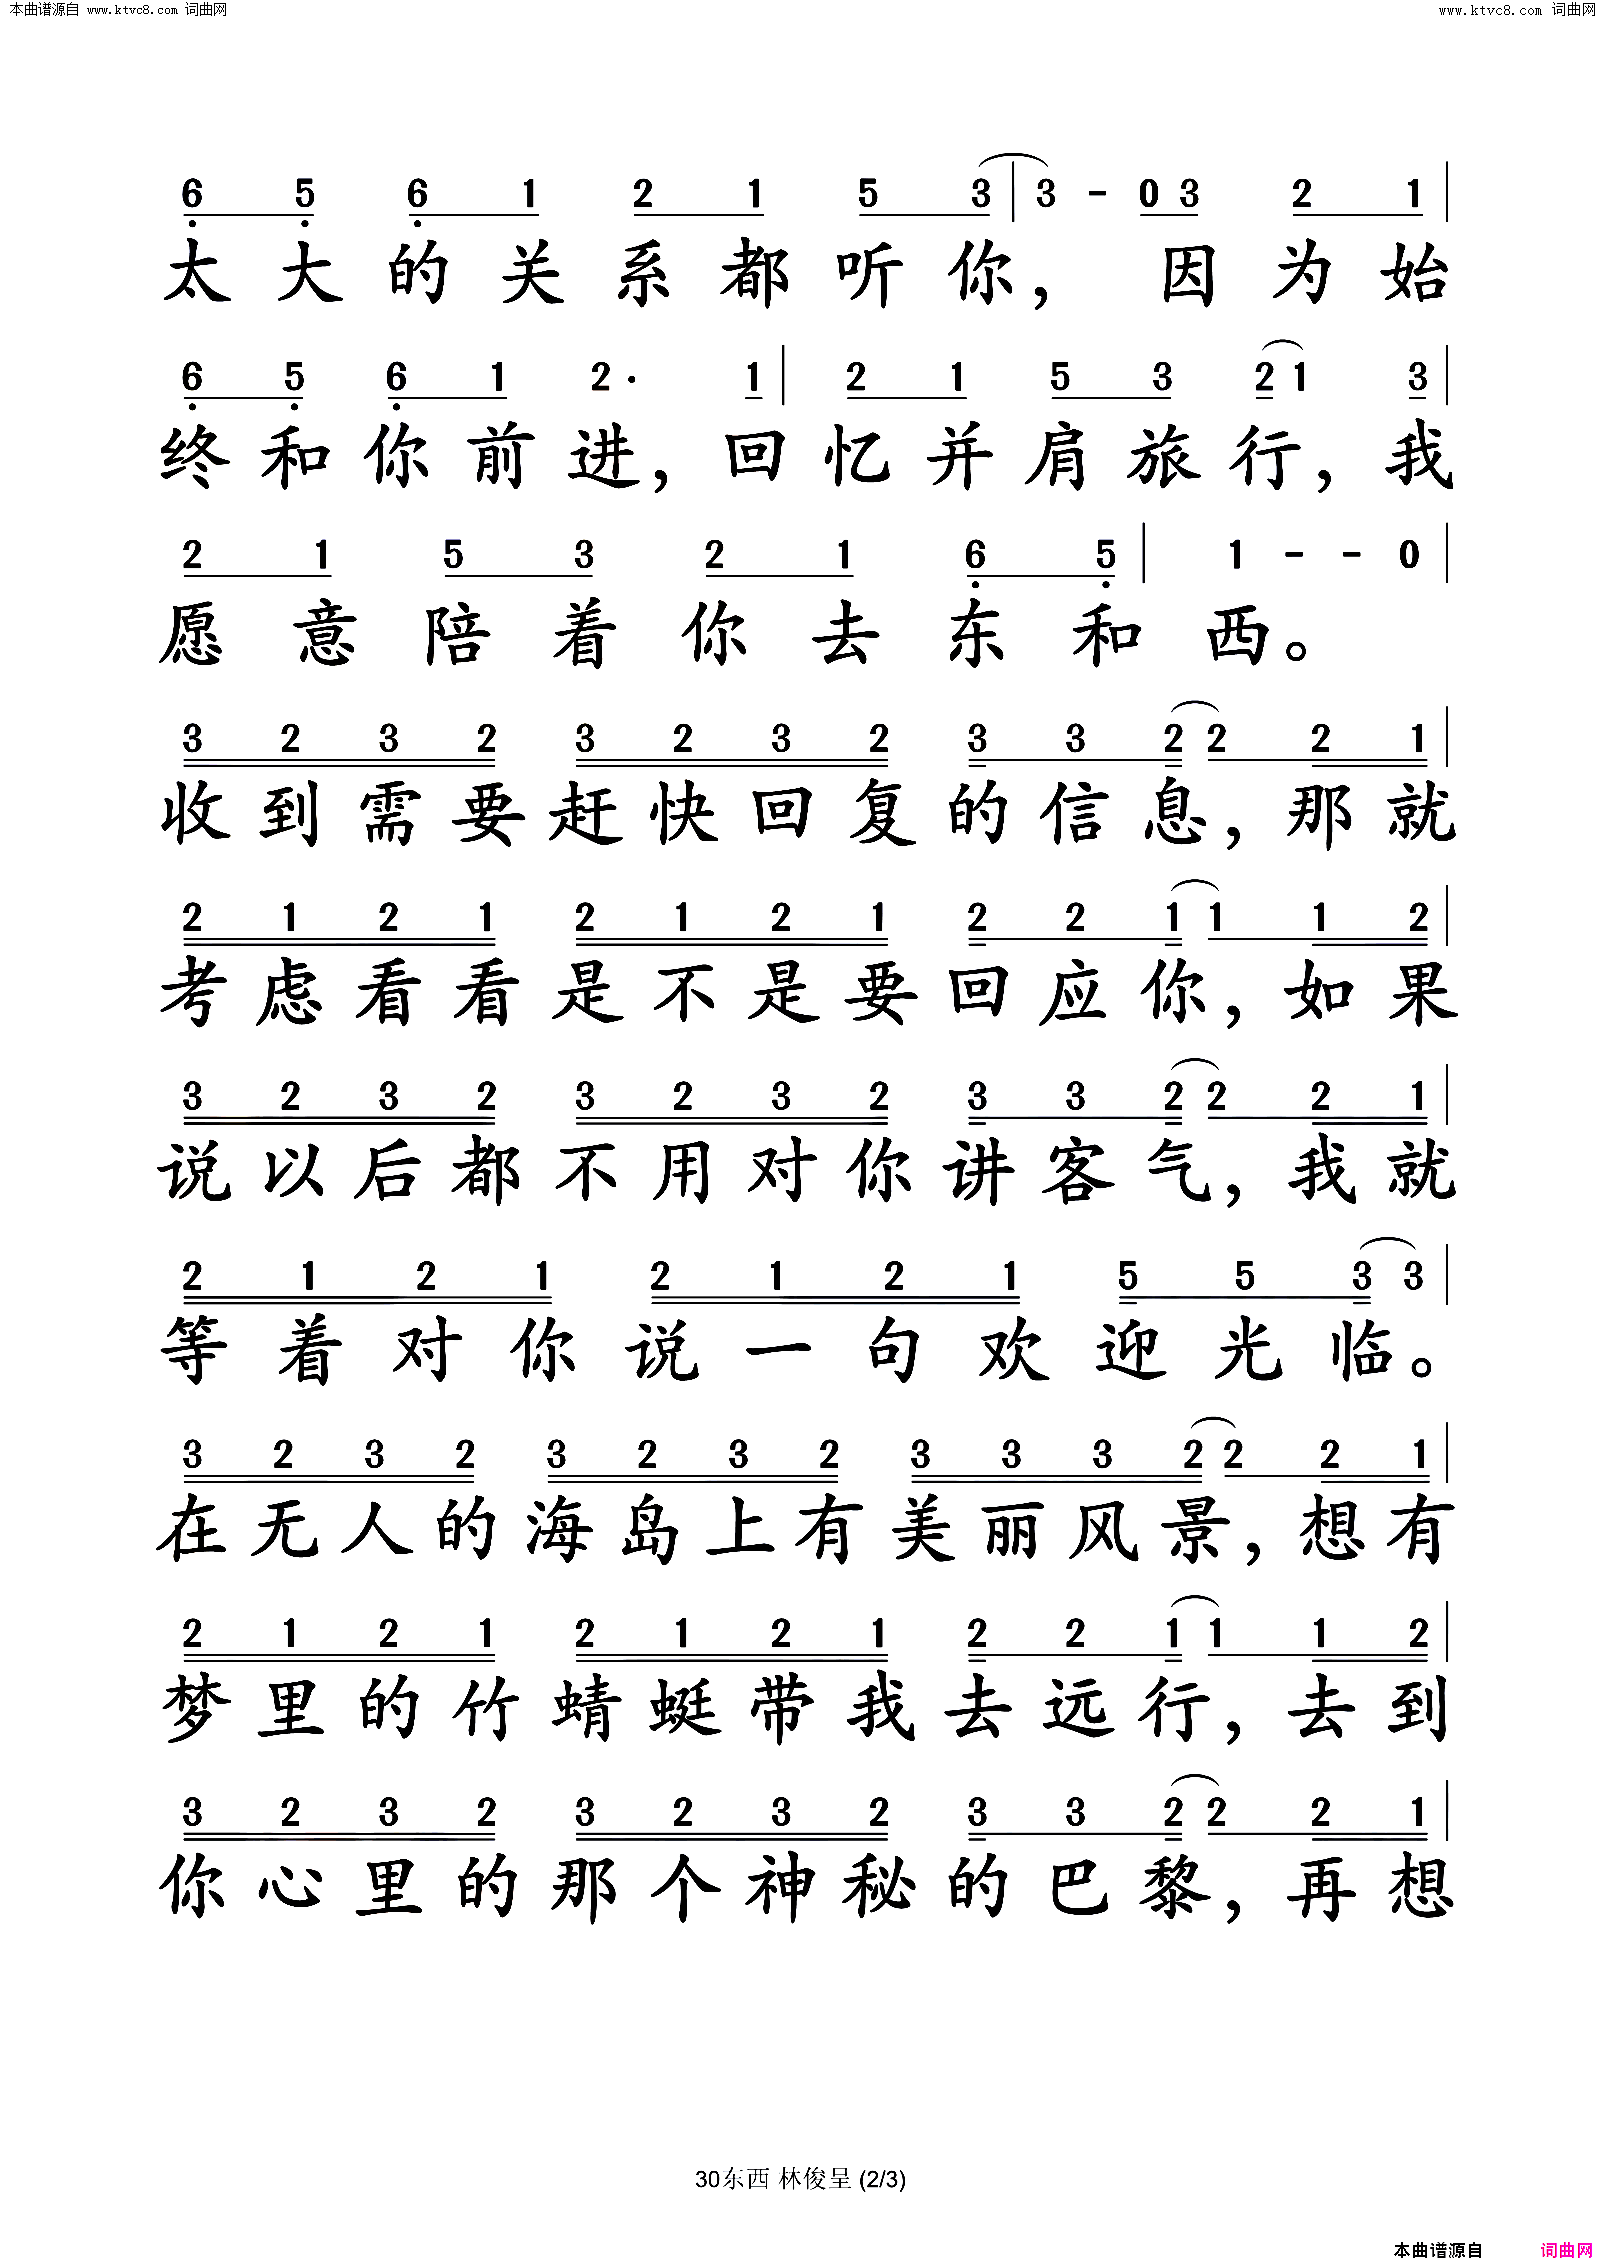 本曲谱源自 www.ktvc8.com 词曲网 www.ktvc8.com 词曲网
6 5 6 1 2 1 5 3 | 3 - 0 3 2 1 |
太大的关系都听你， 因为始
6 5 6 1 2 · 1 | 2 1 5 3 2 1 3 |
终和你前进，回忆并肩旅行，我
2 1 5 3 2 1 6 5 | 1 - - 0 |
愿意陪着你去东和西。
3 2 3 2 3 2 3 2 3 3 2 2 2 1 |
收到需要赶快回复的信息，那就
2 1 2 1 2 1 2 1 2 2 1 1 1 2 |
考虑看看是不是要回应你，如果
3 2 3 2 3 2 3 2 3 3 2 2 2 1 |
说以后都不用对你讲客气，我就
2 1 2 1 2 1 2 1 5 5 3 3 |
等着对你说一句欢迎光临。
3 2 3 2 3 2 3 2 3 3 3 2 2 2 1 |
在无人的海岛上有美丽风景，想有
2 1 2 1 2 1 2 1 2 2 1 1 1 2 |
梦里的竹蜻蜓带我去远行，去到
3 2 3 2 3 2 3 2 3 3 2 2 2 1 |
你心里的那个神秘的巴黎，再想
30东西 林俊呈 (2/3)
本曲谱源自 词曲网